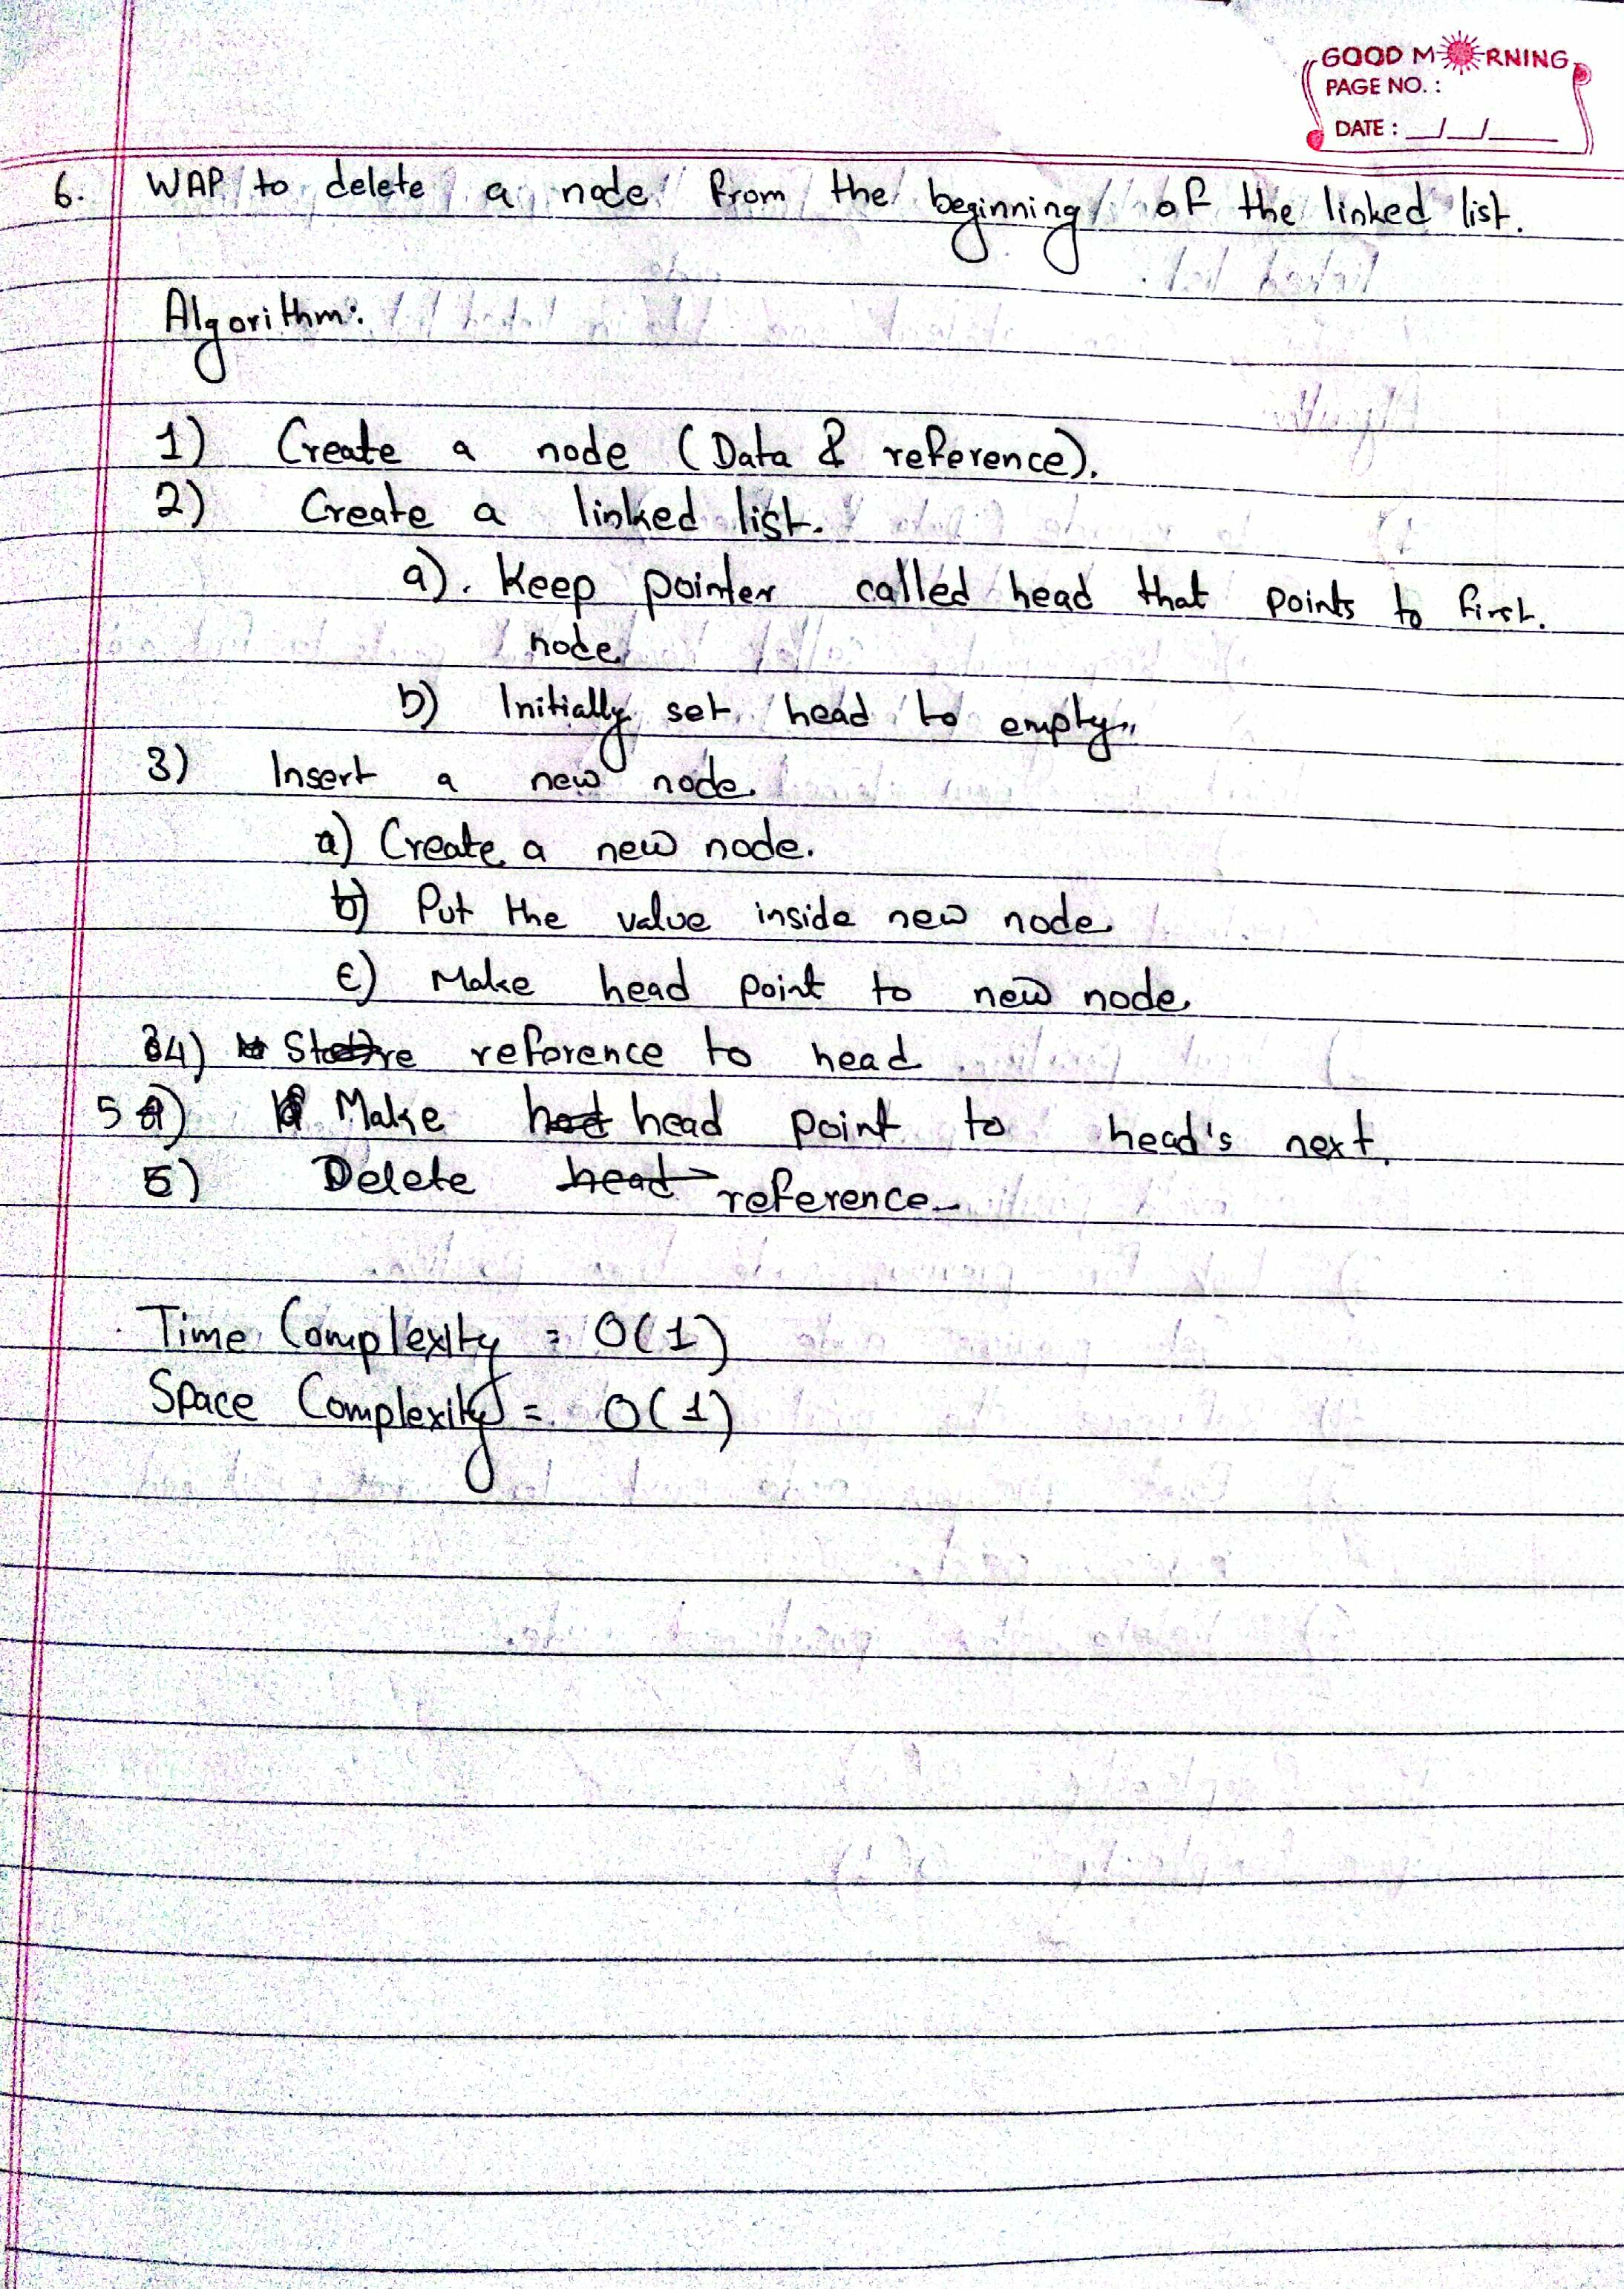 GOOD MORNING
PAGE NO. :
DATE : __/__/____
6. WAP to delete a node from the beginning of the linked list.
Algorithm:
1) Create a node (Data & reference).
2) Create a linked list.
a). Keep pointer called head that points to first.
node
b) Initially set head to empty.
3) Insert a new node.
a) Create a new node.
b) Put the value inside new node.
c) Make head point to new node.
4) Store reference to head
5) Make head point to head's next.
5) Delete reference.
Time Complexity = O(1)
Space Complexity = O(1)